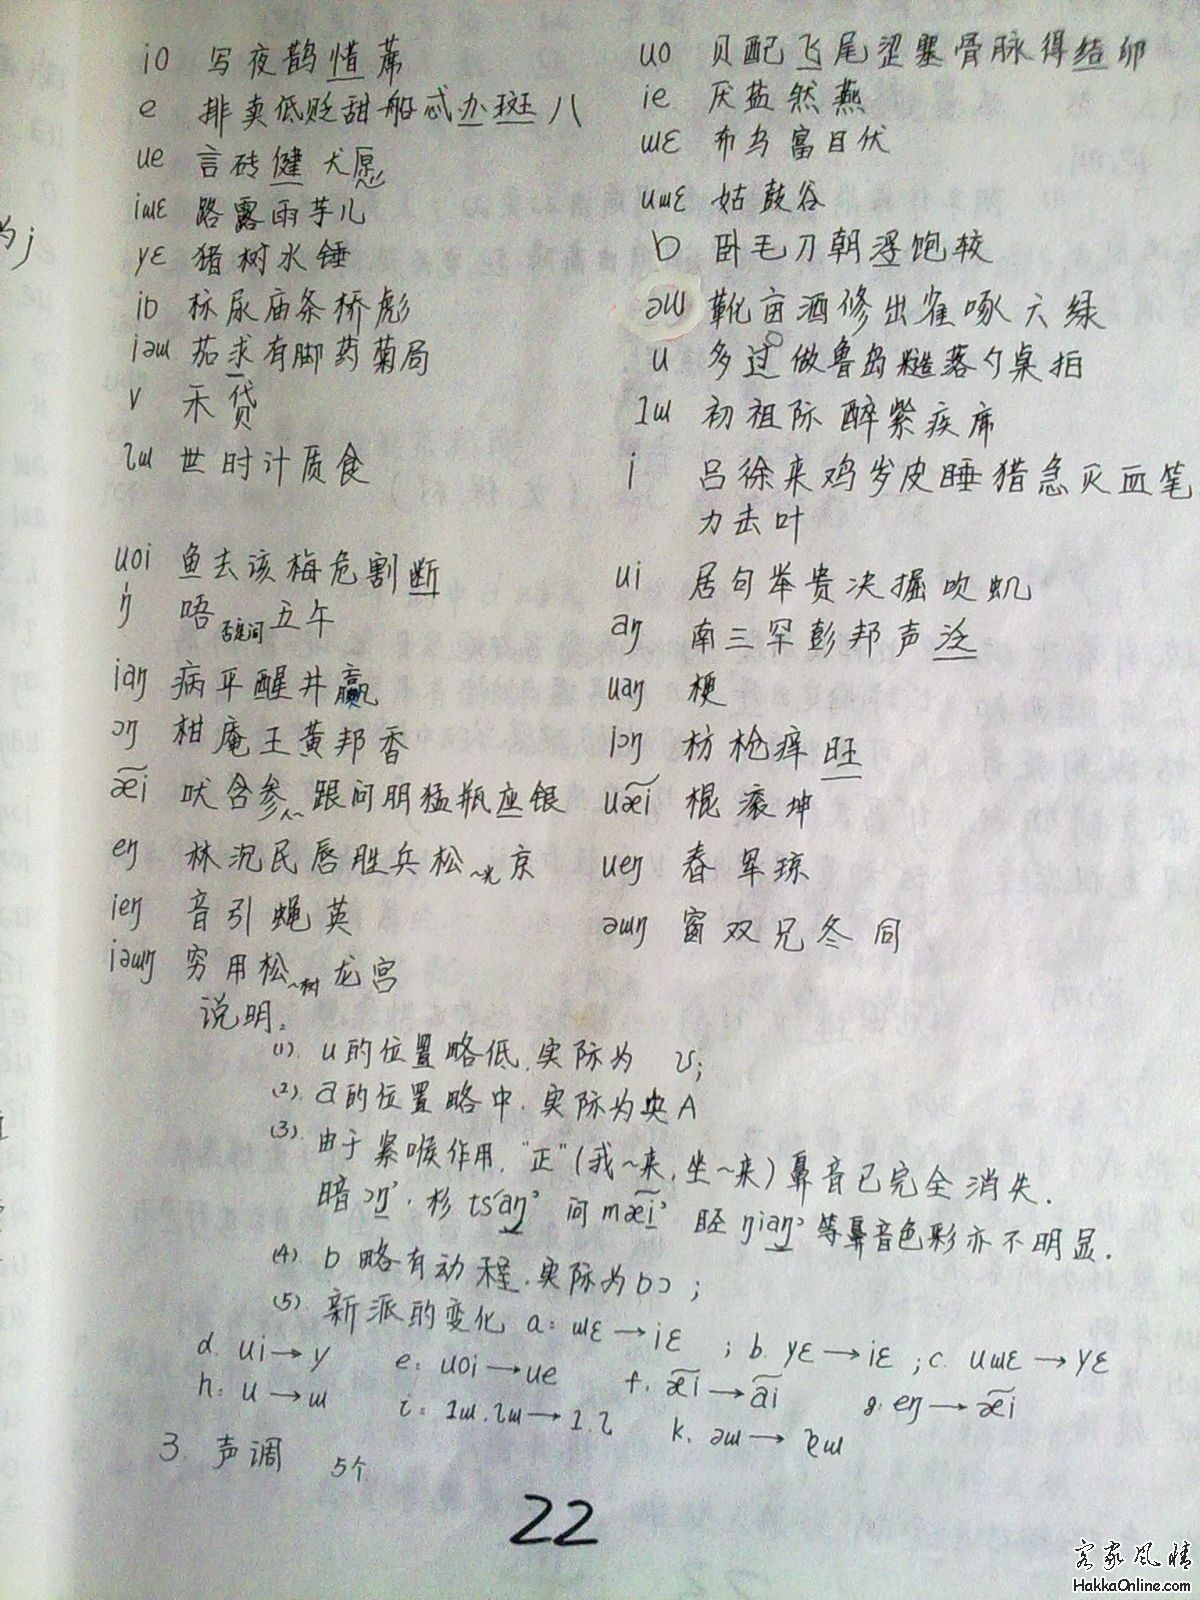 io 写夜鹊惜席
uo 贝配飞尾涩塞骨脉得结卵
e 排卖低贬甜船忒办斑八
ie 厌盐然燕
ue 言砖健犬愿
ɯɛ 布乌富目伏
iɯɛ 路露雨芋儿
uɯɛ 姑鼓谷
yɛ 猪树水锤
ɒ 卧毛刀朝浮饱较
iɒ 标尿庙条桥彪
əɯ 靴亩酒修出雀啄六绿
iəɯ 茄求有脚药菊局
u 多过做鲁岛糙落勺桌拍
v 禾贷
ɿɯ 初祖际醉紫疾席
ʅɯ 世时计质食
i 吕徐来鸡岁皮睡猎急灭血笔
力去叶
uoi 鱼去该梅危割断
ui 居句举贵决掘吹虮
ŋ̍ 唔否定词五午
aŋ 南三罕彭邦声泛
iaŋ 病平醒井赢
uaŋ 梗
ɔŋ 柑庵王黄邦香
iɔŋ 枋枪痒旺
æ̃i 吠含参人~跟问朋猛瓶座银
uæ̃i 棍滚坤
eŋ 林沉民唇胜兵松~光京
ueŋ 春军琼
ieŋ 音引蝇英
əɯŋ 窗双兄冬同
iəɯŋ 穷用松~树龙宫
说明:
(1). u的位置略低.实际为 ʋ;
(2). a的位置略中.实际为央A
(3) 由于紧喉作用,"正"(我~来,坐~来)鼻音已完全消失.
暗ɔŋ˒. 杉tsʻaŋ˒ 问mæ̃i˒ 胫ŋiaŋ˒等鼻音色彩亦不明显.
(4) ɒ略有动程.实际为ɒɔ;
(5) 新派的变化 a: ɯɛ→iɛ ; b. yɛ→iɛ ; c. uɯɛ→yɛ
d. ui→y e: uoi→ue f. æ̃i→ãi g: eŋ→æ̃i
h: u→ɯ i: ɿɯ.ʅɯ→ɿ.ʅ k. əɯ→ɐɯ
3. 声调 5个
22
客家风情
HakkaOnline.com